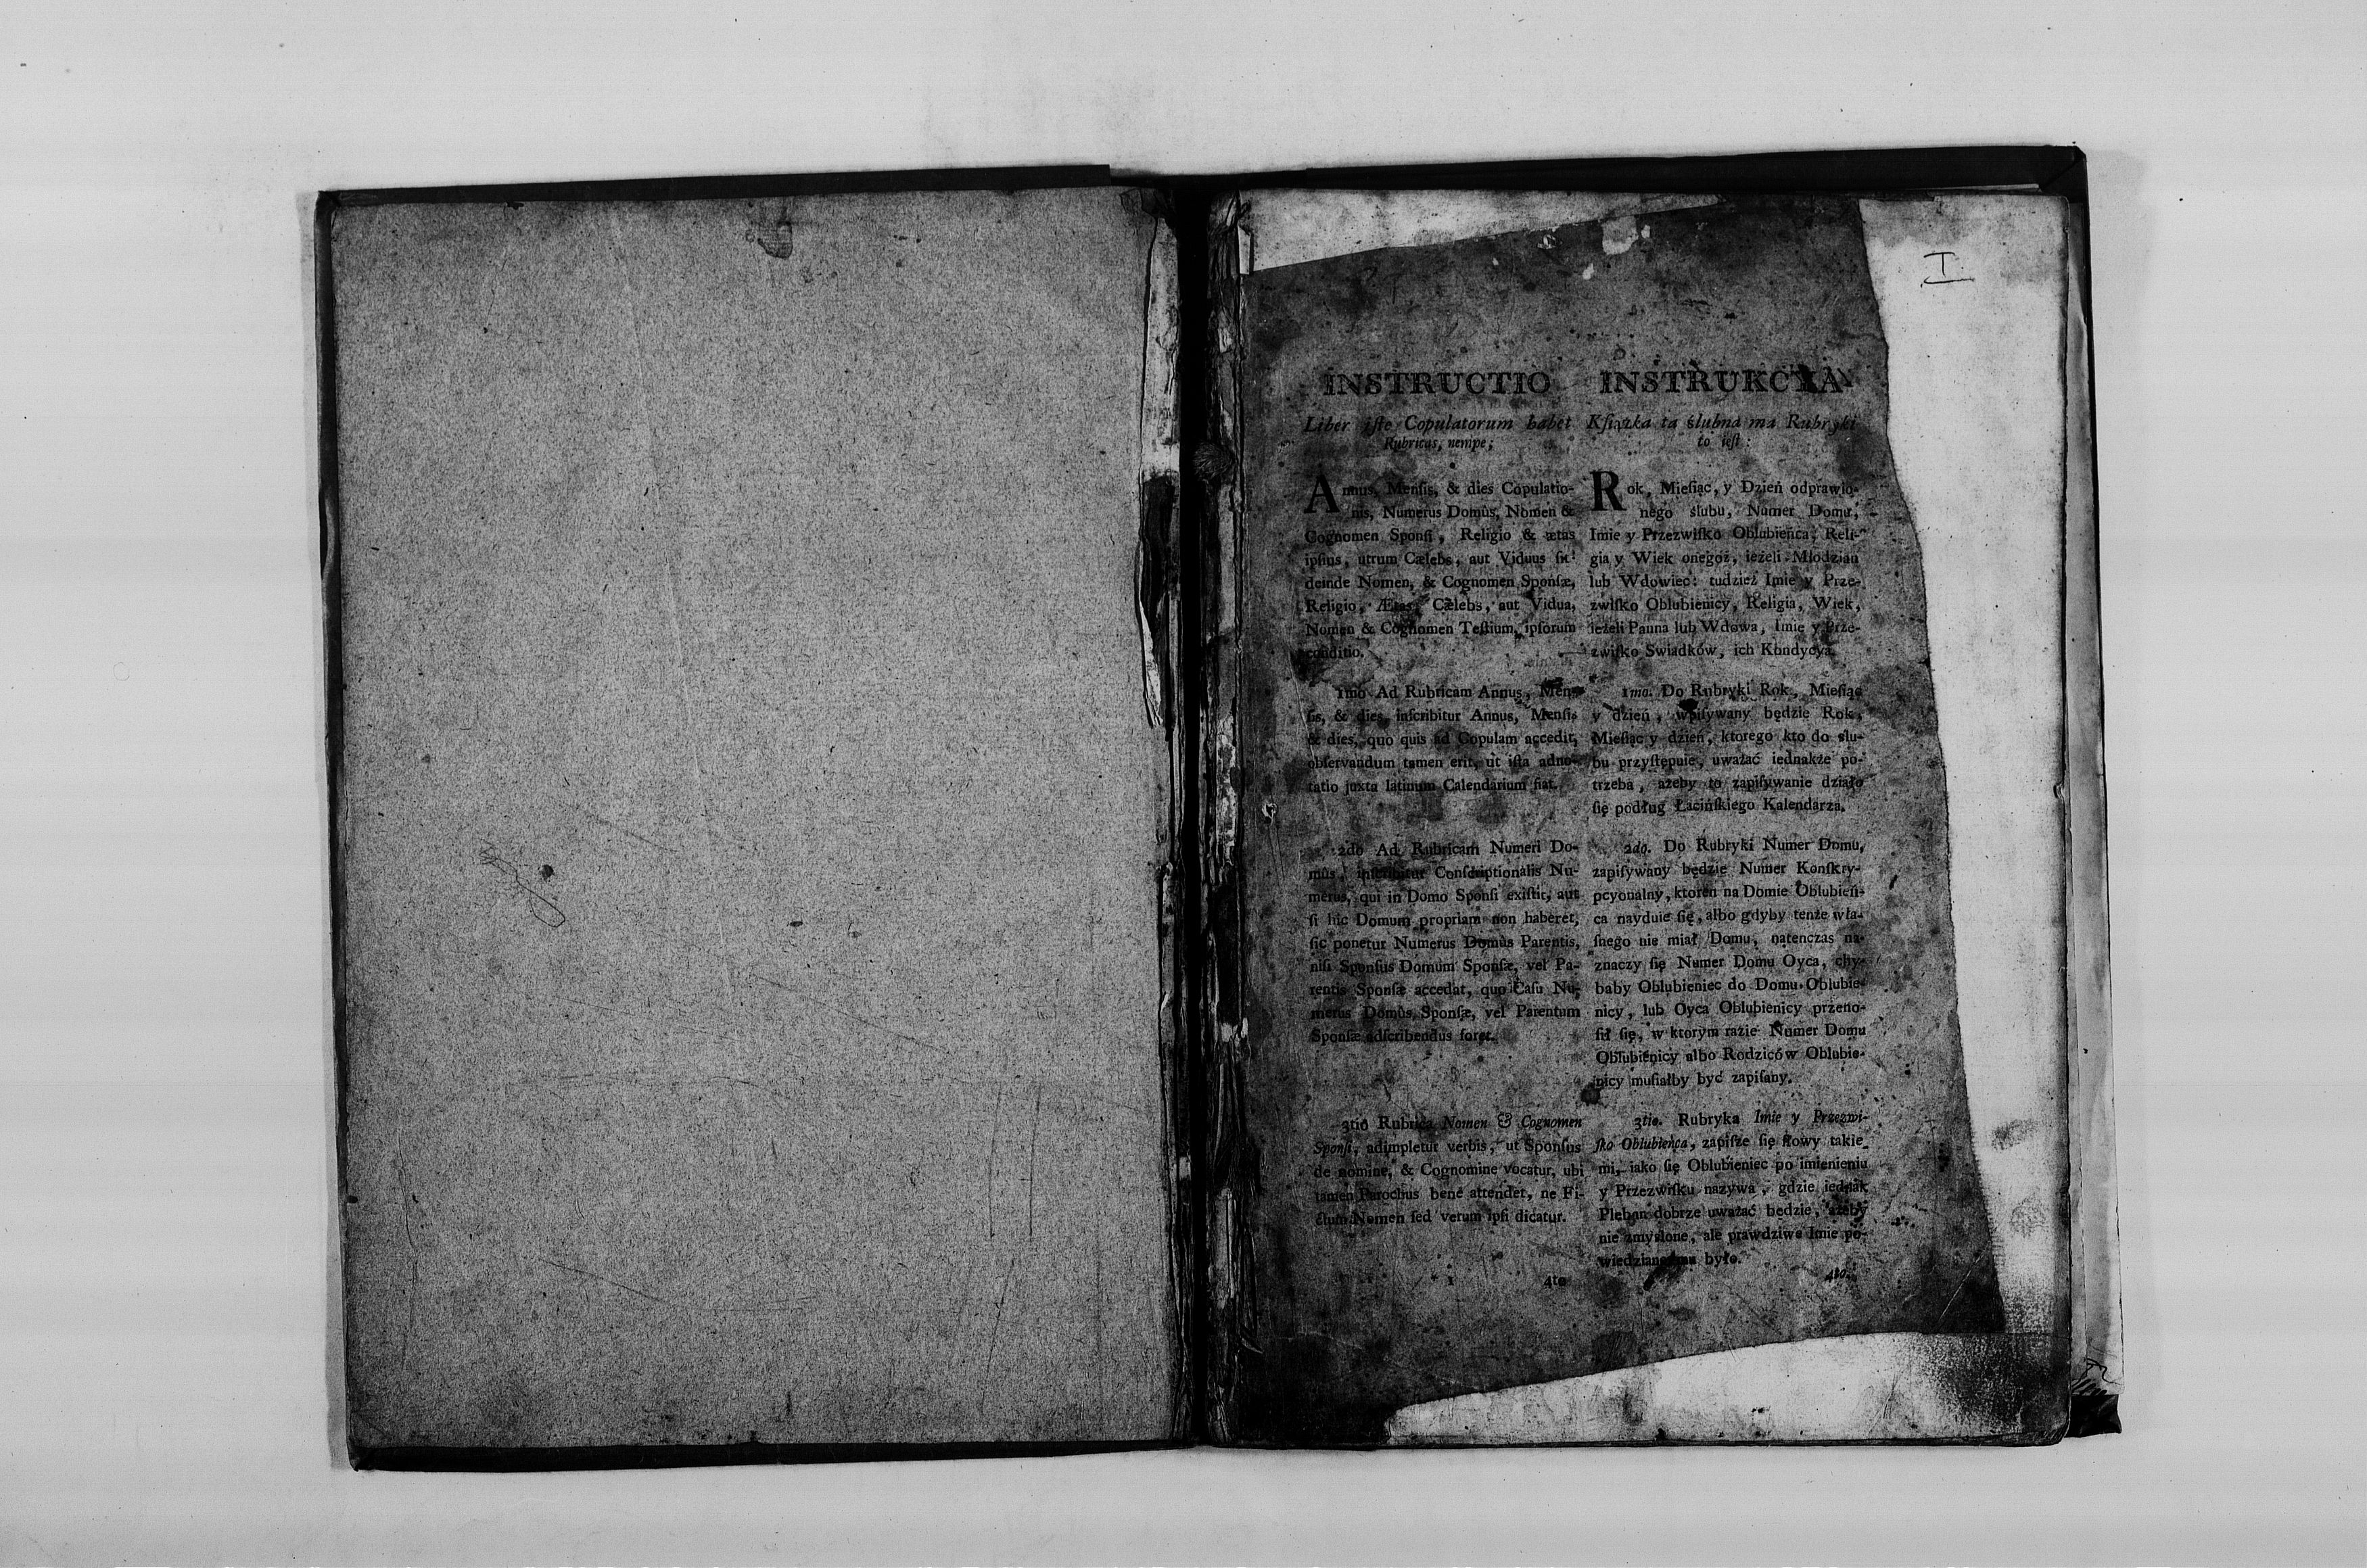 I
INSTRUCTIO
Liber iste Copulatorum habet
Rubricas, nempe;
Annus, Mensis, & dies Copulatio-
nis, Numerus Domûs, Nomen &
Cognomen Sponsi, Religio & ætas
ipsius, utrum Cælebs, aut Viduus sit:
deinde Nomen, & Cognomen Sponsæ,
Religio, Ætas, Cælebs, aut Vidua,
Nomen & Cognomen Testium, ipsorum
conditio.
1mo Ad Rubricam Annus, Men-
sis, & dies, inscribitur Annus, Mensis
& dies, quo quis ad Copulam accedit,
observandum tamen erit, ut ista adno-
tatio juxta latinum Calendarium fiat.
2do Ad Rubricam Numeri Do-
mûs, inscribitur Conscriptionalis Nu-
merus, qui in Domo Sponsi existit, aut
si hic Domum propriam non haberet,
sic ponetur Numerus Domûs Parentis,
nisi Sponsus Domum Sponsæ, vel Pa-
rentis Sponsæ accedat, quo Casu Nu-
merus Domûs Sponsæ, vel Parentum
Sponsæ adscribendus foret.
3tio Rubrica Nomen & Cognomen
Sponsi, adimpletur verbis, ut Sponsus
de nomine, & Cognomine vocatur, ubi
tamen Parochus bene attendet, ne Fi-
ctum Nomen sed verum ipsi dicatur.
* 1 4to
INSTRUKCYA
Ksiązka ta ślubna ma Rubryki
to iest:
Rok, Miesiąc, y Dzień odprawio-
nego ślubu, Numer Domu,
Imie y Przezwisko Oblubieńca, Reli-
gia y Wiek onegoż, ieżeli Młodzian
lub Wdowiec: tudzież Imie y Prze-
zwisko Oblubienicy, Religia, Wiek,
ieżeli Panna lub Wdowa, Imie y Prze-
zwisko Swiadków, ich Kondycya.
1mo. Do Rubryki Rok, Miesiąc
y dzień, wpisywany będzie Rok,
Miesiąc y dzień, ktorego kto do slu-
bu przystępuie, uważać iednakże po-
trzeba, ażeby to zapisywanie działo
się podług Łacińskiego Kalendarza.
2do. Do Rubryki Numer Domu,
zapisywany będzie Numer Konskry-
pcyonalny, ktoren na Domie Oblubień-
ca nayduie się, albo gdyby tenże wła-
snego nie miał Domu, natenczas na-
znaczy się Numer Domu Oyca, chy-
baby Oblubieniec do Domu Oblubie-
nicy, lub Oyca Oblubienicy przeno-
sił się, w ktorym razie Numer Domu
Oblubienicy albo Rodziców Oblubie-
nicy musiałby być zapisany.
3tio. Rubryka Imie y Przezwi-
sko Oblubieńca, zapisze się słowy takie
mi, iako się Oblubieniec po imienieniu
y Przezwisku nazywa, gdzie iednak
Pleban dobrze uważać będzie, ażeby
nie zmyslone, ale prawdziwe Imie po-
było.
4to.